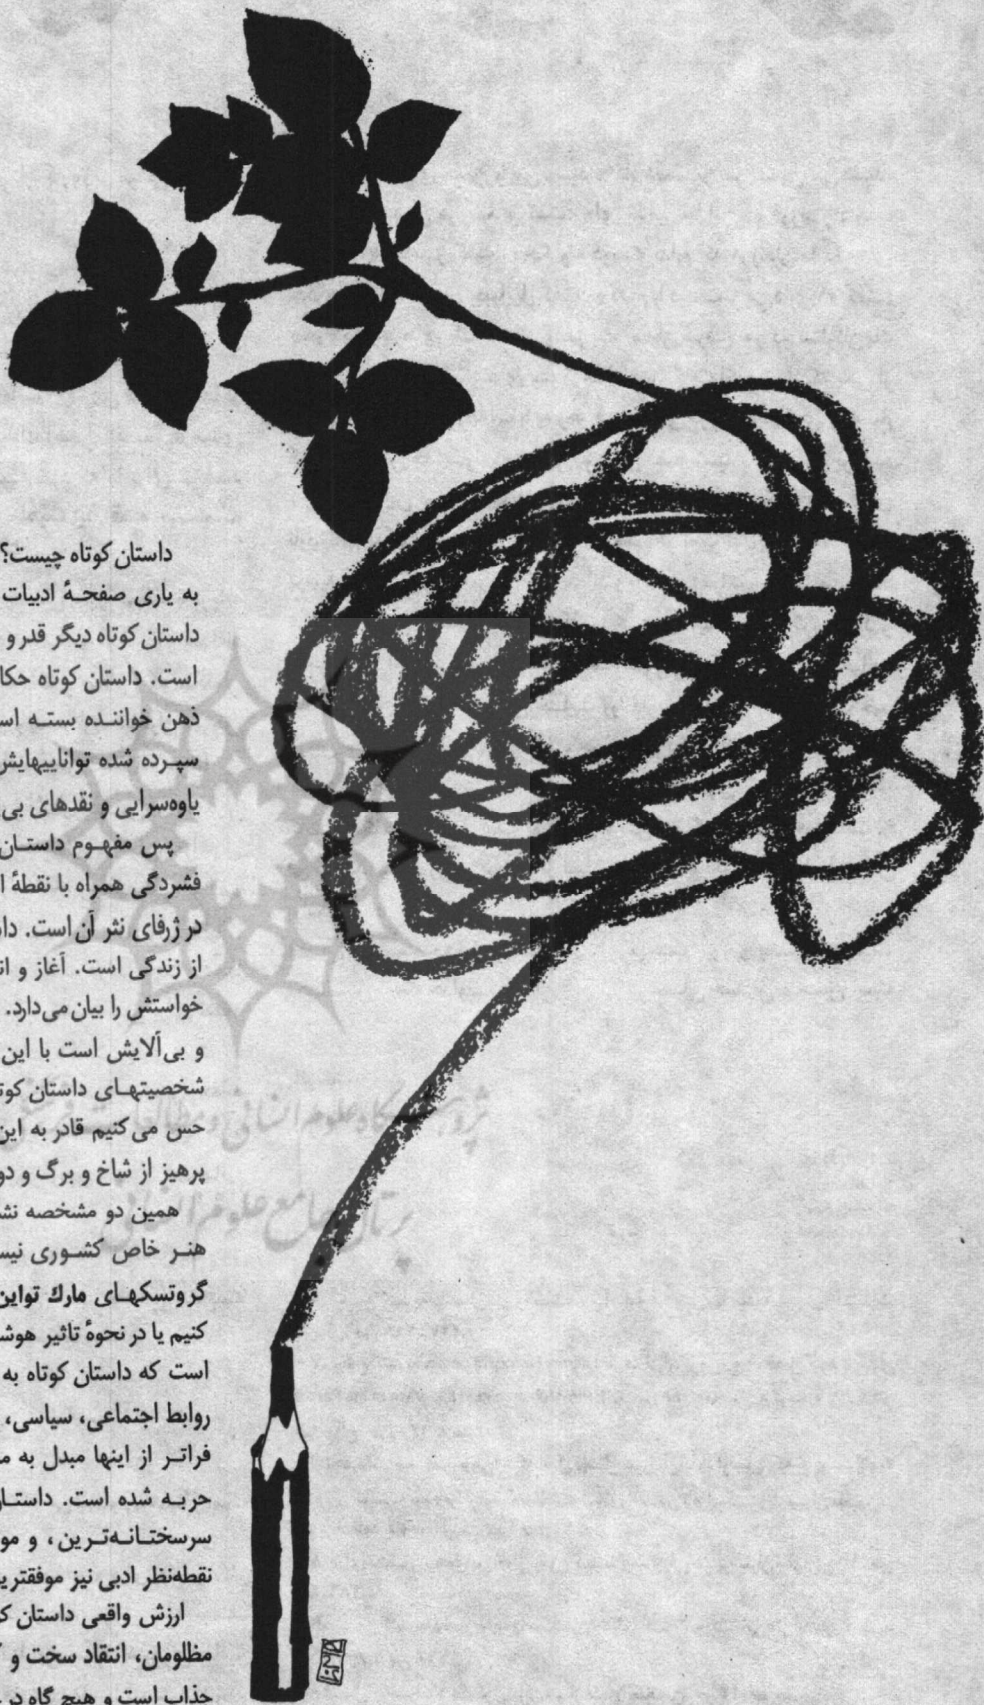 داستان کوتاه چیست؟
به یاری صفحهٔ ادبیات
داستان کوتاه دیگر قدر و
است. داستان کوتاه حکا
ذهن خواننده بسته اس
سپرده شده تواناییهایش
یاوه‌سرایی و نقدهای بی
پس مفهوم داستان
فشردگی همراه با نقطهٔ ا
در ژرفای نثر آن است. دا
از زندگی است. آغاز و ان
خواستش را بیان می‌دارد.
و بی‌آلایش است با این
شخصیتهای داستان کوت
حس می‌کنیم قادر به این
پرهیز از شاخ و برگ و دو
همین دو مشخصه نش
هنر خاص کشوری نیس
گروتسکهای مارك تواین
کنیم یا در نحوهٔ تاثیر هوش
است که داستان کوتاه به
روابط اجتماعی، سیاسی،
فراتر از اینها مبدل به م
حربه شده است. داستا
سرسختانه‌ترین، و مو
نقطه‌نظر ادبی نیز موفقتری
ارزش واقعی داستان ک
مظلومان، انتقاد سخت و
جذاب است و هیچ گاه در
پژوهشگاه علوم انسانی و مطالعات فرهنگی
پرتال جامع علوم انسانی